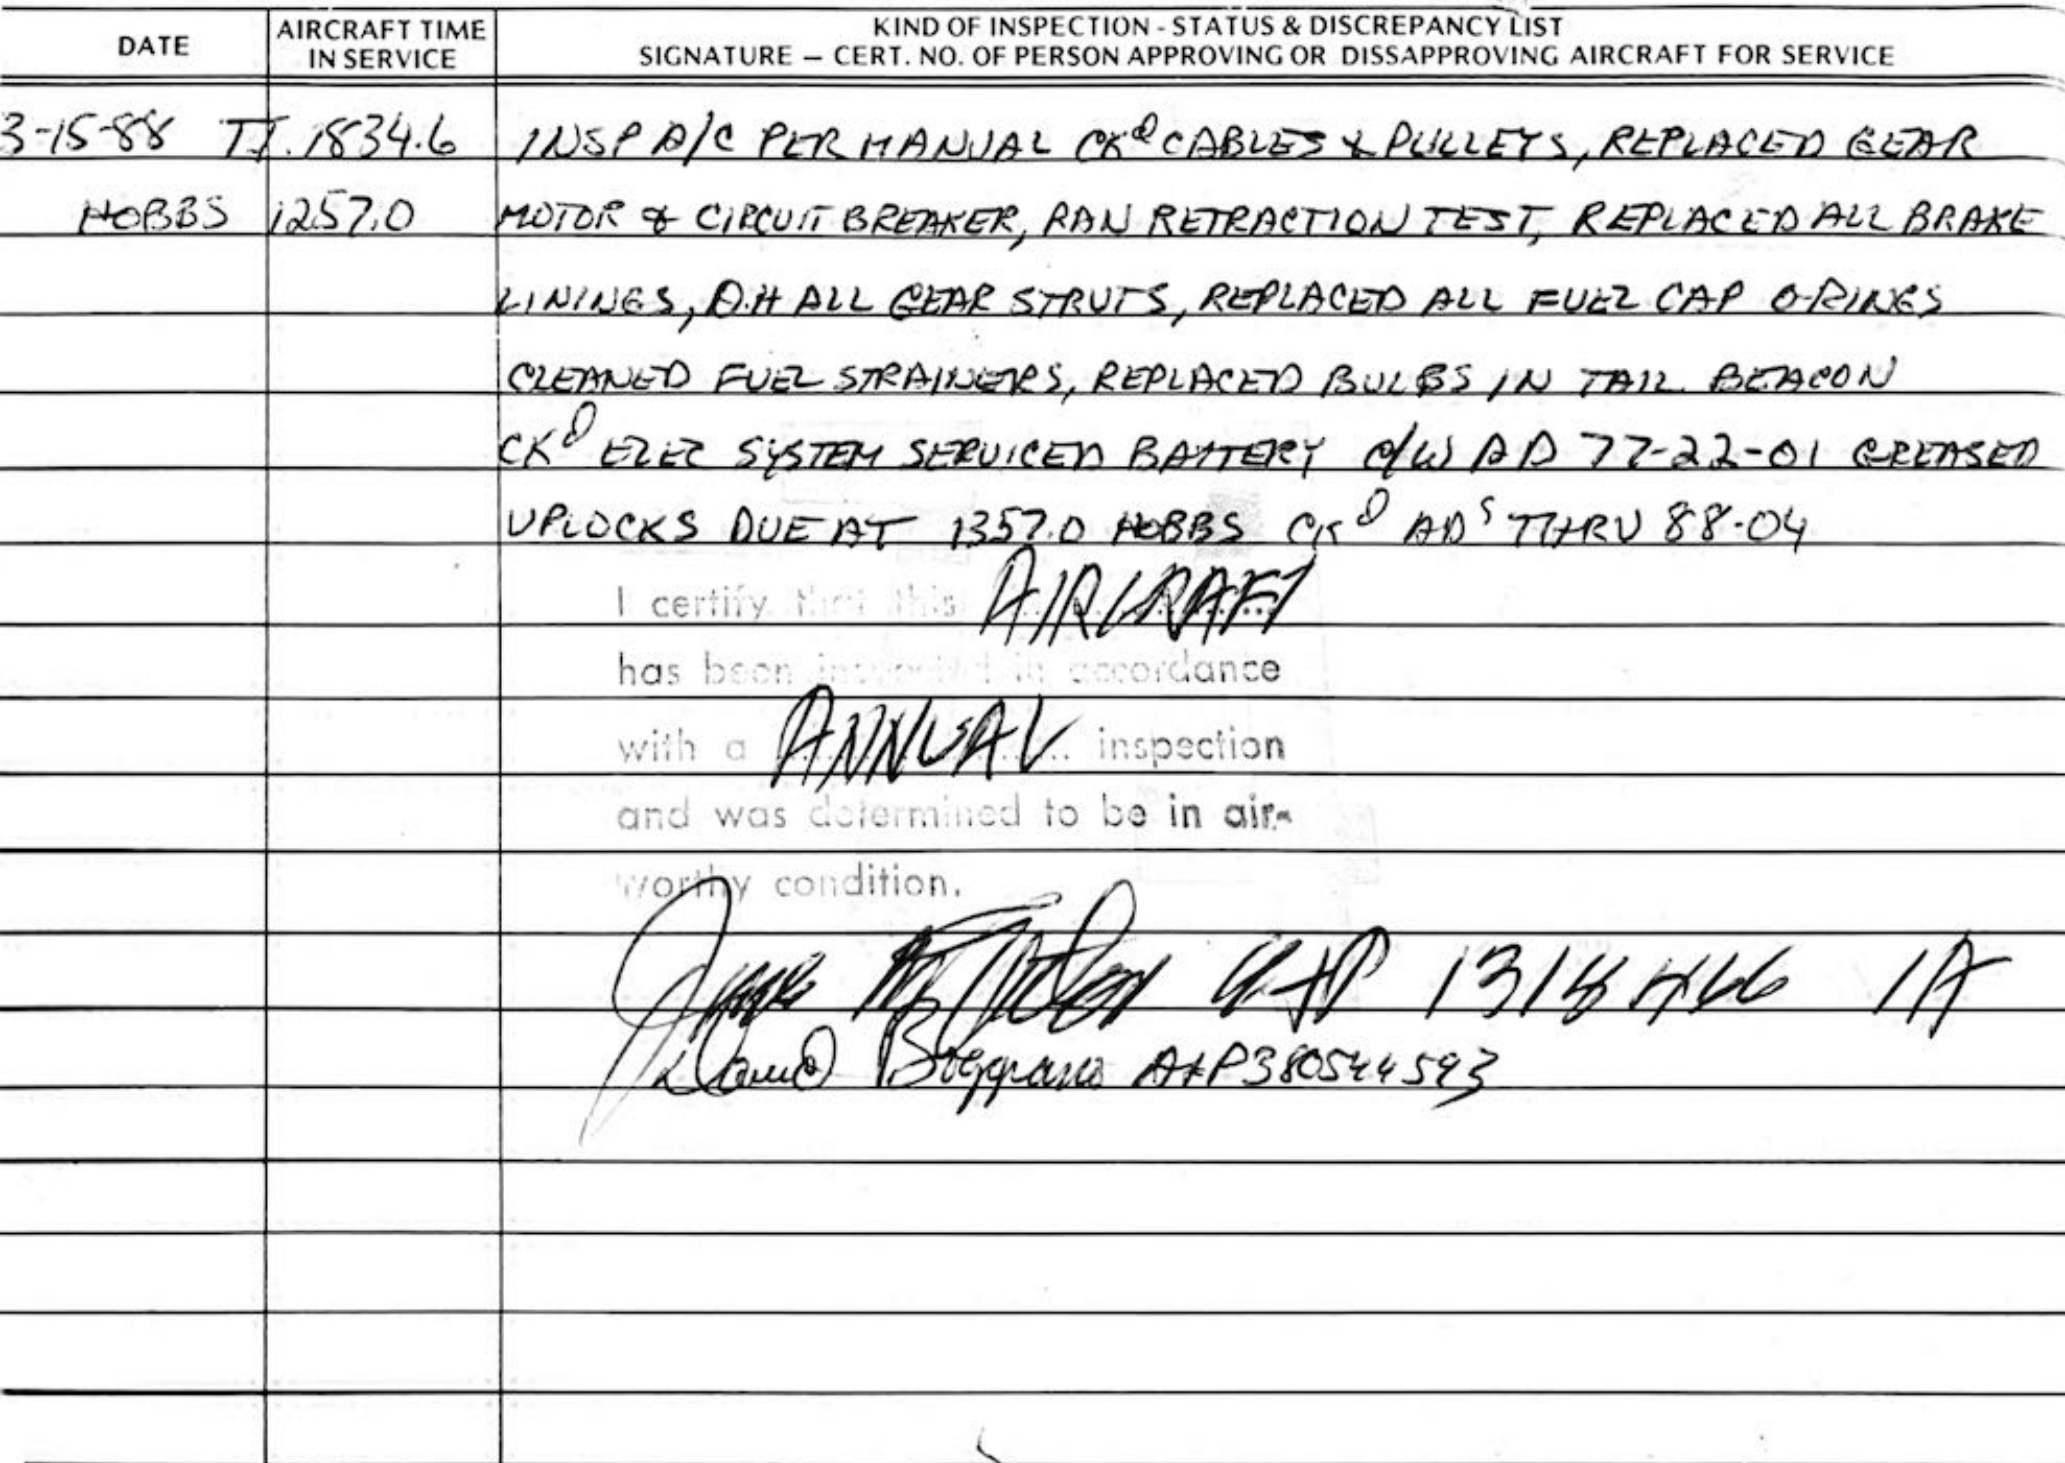 DATE
AIRCRAFT TIME
IN SERVICE
KIND OF INSPECTION - STATUS & DISCREPANCY LIST
SIGNATURE — CERT. NO. OF PERSON APPROVING OR DISSAPPROVING AIRCRAFT FOR SERVICE
3-15-88 TT. 1834.6 INSP A/C PER MANUAL CKD CABLES & PULLEYS, REPLACED GEAR
HOBBS 1257.0 MOTOR & CIRCUIT BREAKER, RAN RETRACTION TEST, REPLACED ALL BRAKE
LININGS, O.H ALL GEAR STRUTS, REPLACED ALL FUEL CAP O-RINGS
CLEANED FUEL STRAINERS, REPLACED BULBS IN TAIL BEACON
CKD ELEC SYSTEM SERVICED BATTERY C/W AD 77-22-01 GREASED
UPLOCKS DUE AT 1357.0 HOBBS CKD ADS THRU 88-04
I certify that this AIRCRAFT
has been inspected in accordance
with a ANNUAL inspection
and was determined to be in air-
worthy condition.
A&P IA
David A&P 380544593